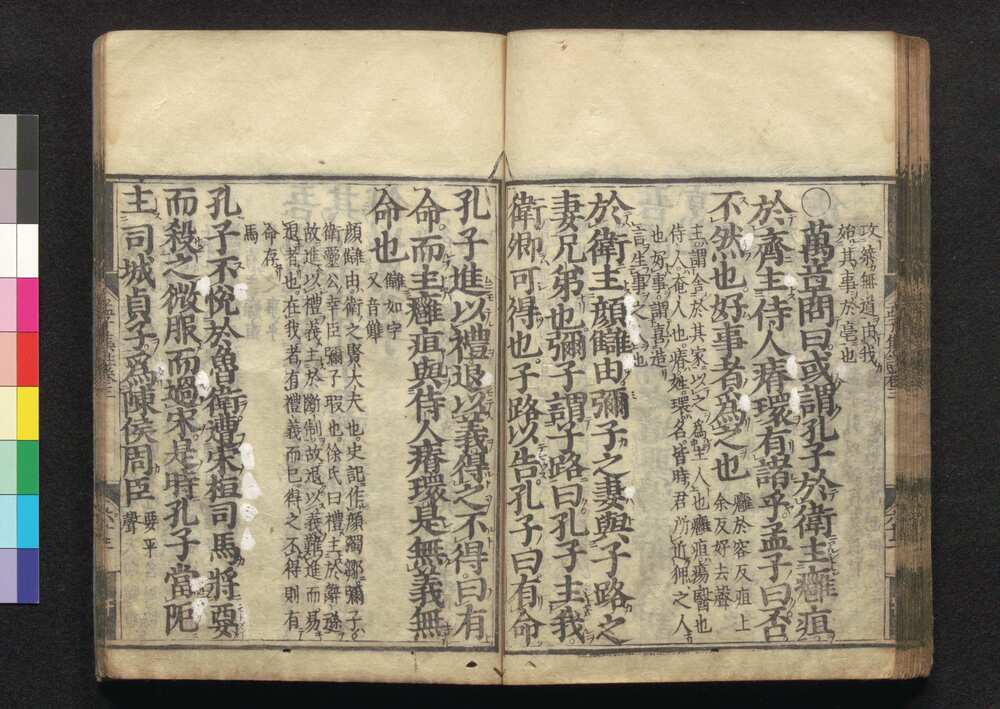 攻桀無道由我
始其事於亳也
○萬章問曰或謂孔子於衛主癰疽
於齊主侍人瘠環有諸乎孟子曰否
不然也好事者爲之也
癰於容反疽七
余反好去聲
主謂舎於其家以之爲主人也癰疽瘍醫也
侍人奄人也瘠姓環名皆時君所近狎之人
也好事謂喜造
言生事之人也
於衛主顔讎由彌子之妻與子路之
妻兄弟也彌子謂子路曰孔子主我
衛卿可得也子路以告孔子曰有命
孔子進以禮退以義得之不得曰有
命而主癰疽與侍人瘠環是無義無
命也
讎如字
又音犨
顔讎由衛之賢大夫也史記作顔濁鄒彌子
衛靈公幸臣彌子瑕也徐氏曰禮主於辭遜
故進以禮義主於斷制故退以義難進而易
退者也在我者有禮義而已得之不得則有
命存
焉
孔子不悅於魯衛遭宋桓司馬將要
而殺之微服而過宋是時孔子當阨
主司城貞子爲陳侯周臣
要平
聲